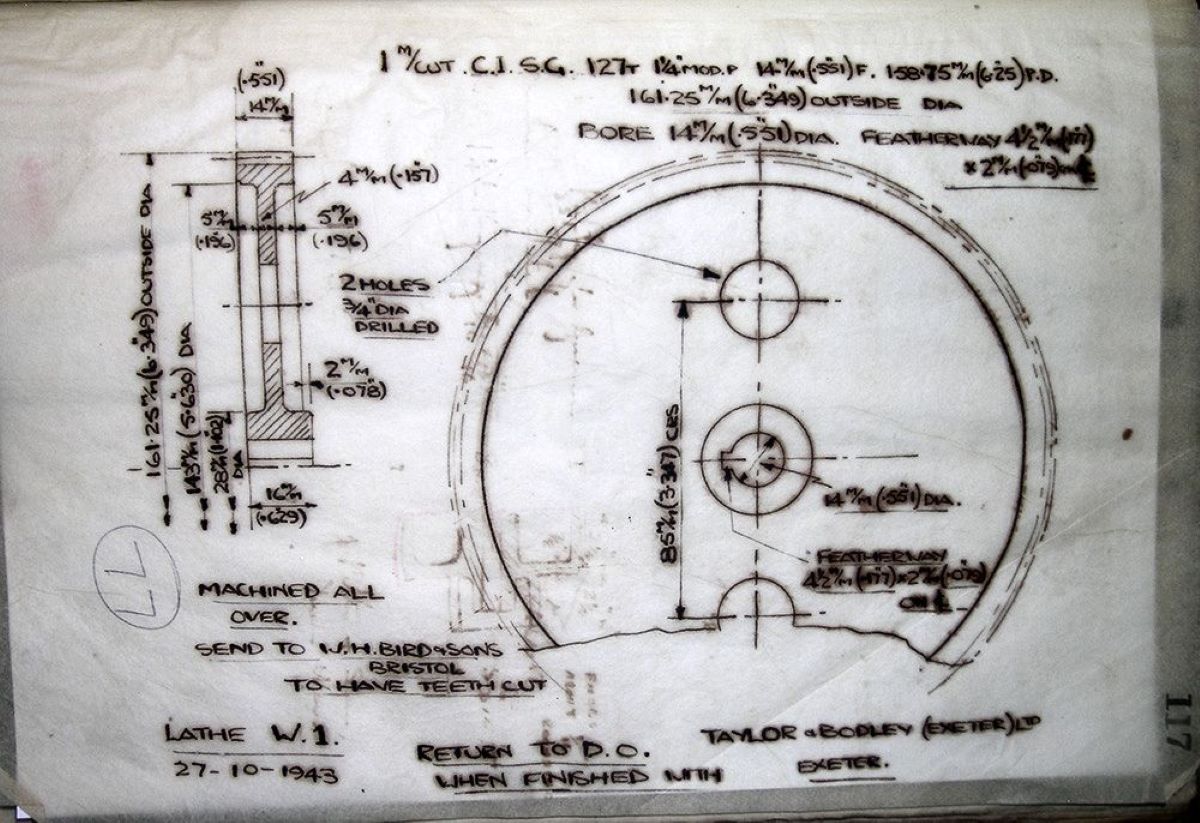 1 M/CUT. C.I. S.G. 127T 1¼" MOD. P 14 M/M (.551") F. 158.75 M/M (6.25") P.D.
161.25 M/M (6.349") OUTSIDE DIA
BORE 14 M/M (.551") DIA. FEATHERWAY 4½ M/M (.177)
× 2 M/M (.079)
(.551")
14 M/M
4 M/M (.157)
5 M/M
(.196)
5 M/M
(.196)
2 HOLES
¾" DIA
DRILLED
2 M/M
(.078)
161.25 M/M (6.349") OUTSIDE DIA
143 M/M (5.630) DIA
28 M/M (1.102)
DIA
16 M/M
(.629)
85 M/M (3.347") CRS
14 M/M (.551") DIA.
FEATHERWAY
4½ M/M (.177) × 2 M/M (.079)
ON
LL
MACHINED ALL
OVER.
SEND TO W.H. BIRD & SONS
BRISTOL
TO HAVE TEETH CUT
LATHE W.1.
27-10-1943
RETURN TO D.O.
WHEN FINISHED WITH
TAYLOR & BODLEY (EXETER) LTD
EXETER.
117